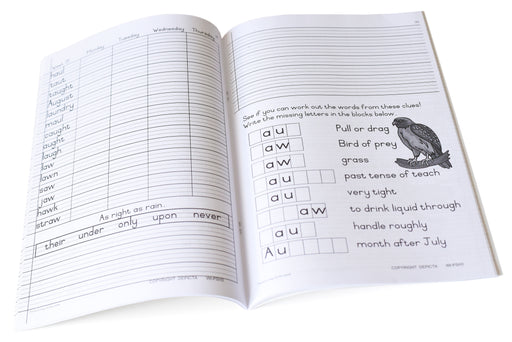 Monday Tuesday Wednesday Thursday
haul
taut
taught
August
laundry
maul
caught
aught
laugh
law
lawn
saw
jaw
hawk
straw
As right as rain...
their under only upon never
COPYRIGHT DEPICTA
See if you can work out the words from these clues!
Write the missing letters in the blocks below
au Pull or drag
aw Bird of prey
aw grass
au past tense of teach
au very tight
aw to drink liquid through
au handle roughly
Au month after July
COPYRIGHT DEPICTA